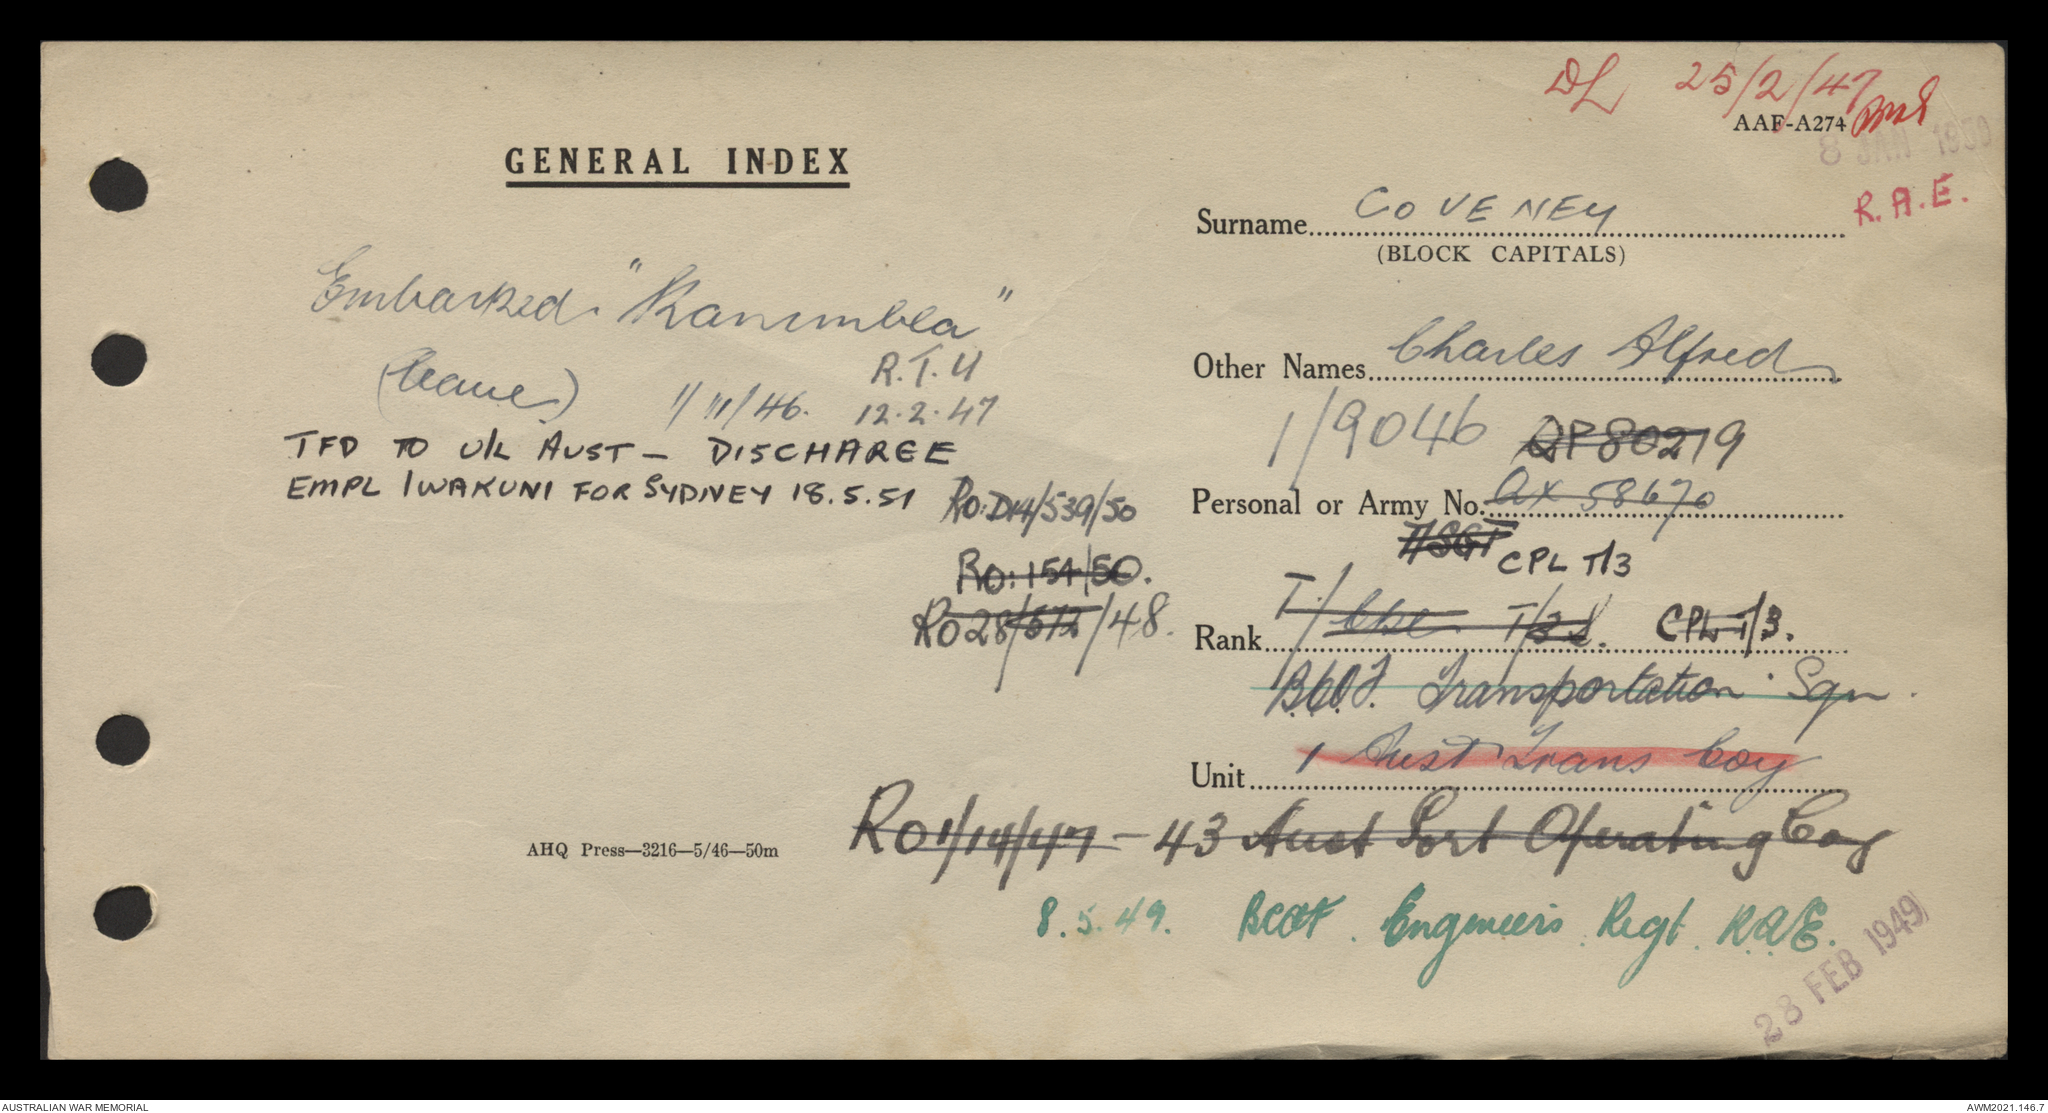 DL 25/2/47
AAF-A274
8 JAN 1950
GENERAL INDEX
R.A.E.
Surname COVENEY
(BLOCK CAPITALS)
Embarked "Kanimbla"
(Leave) 1/11/46.
R.T.U
12.2.47
Other Names Charles Alfred
TFD TO U/L AUST — DISCHARGE
EMPL IWAKUNI FOR SYDNEY 18.5.51
1/9046 QP80219
Personal or Army No. QX 58670
RO:D14/539/50
T/SGT CPL T/3
RO:154/50.
RO 28/572/48.
Rank T/Cpl T/3 CPL T/3.
B.C.O.F. Transportation Sqn.
Unit 1 Aust Trans Coy
RO1/14/47 – 43 Aust Port Operating Coy
AHQ Press—3216—5/46—50m
8.5.49. BCOF. Engineers Regt. RAE.
28 FEB 1949
AUSTRALIAN WAR MEMORIAL
AWM2021.146.7